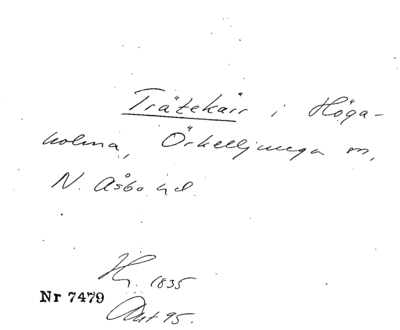 Trätekärr i Höga-
holma, Örkelljunga sn,
N. Åsbo hd.
Hy. 1835
Nr 7479
Ant 95.